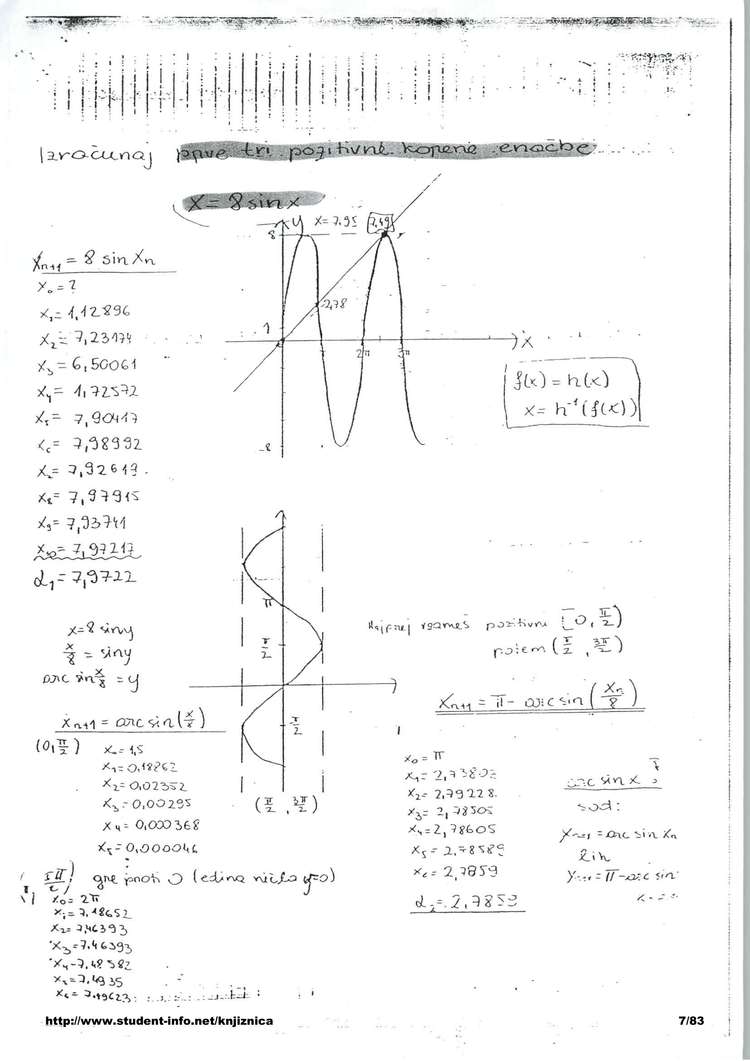 Izračunaj prve tri pozitivne korene enačbe
x = 8 sin x
y x = 7,95 7,49
8
2,78
1
2π 3π
x
-8
x_{n+1} = 8 sin x_n
x_0 = ?
x_1 = 1,12896
x_2 = 7,23174
x_3 = 6,50061
x_4 = 1,72572
x_5 = 7,90417
x_6 = 7,98992
x_7 = 7,92619
x_8 = 7,97915
x_9 = 7,93741
x_10 = 7,97217
α_1 = 7,9722
f(x) = h(x)
x = h^{-1}(f(x))
π
π/2
π/2
x = 8 sin y
x/8 = sin y
arc sin x/8 = y
x_{n+1} = arc sin(x/8)
(0, π/2)
x_0 = 1,5
x_1 = 0,18862
x_2 = 0,02352
x_3 = 0,00295
x_4 = 0,000368
x_5 = 0,000046
gre proti 0 (edina ničla y=0)
(π/2, 3π/2)
Najprej vzameš pozitivni [0, π/2)
potem (π/2, 3π/2)
x_{n+1} = π - arc sin(x_n/8)
x_0 = π
x_1 = 2,73802
x_2 = 2,79228
x_3 = 2,78505
x_4 = 2,78605
x_5 = 2,78589
x_6 = 2,7859
α_2 = 2,7859
arc sin x
sod:
x_{n+1} = arc sin x_n
lih
x_{n+1} = π - arc sin
5π/2
x_0 = 2π
x_1 = 7,18652
x_2 = 7,46393
x_3 = 7,46393
x_4 = 7,48582
x_5 = 7,4935
x_6 = 7,49623
http://www.student-info.net/knjiznica
7/83